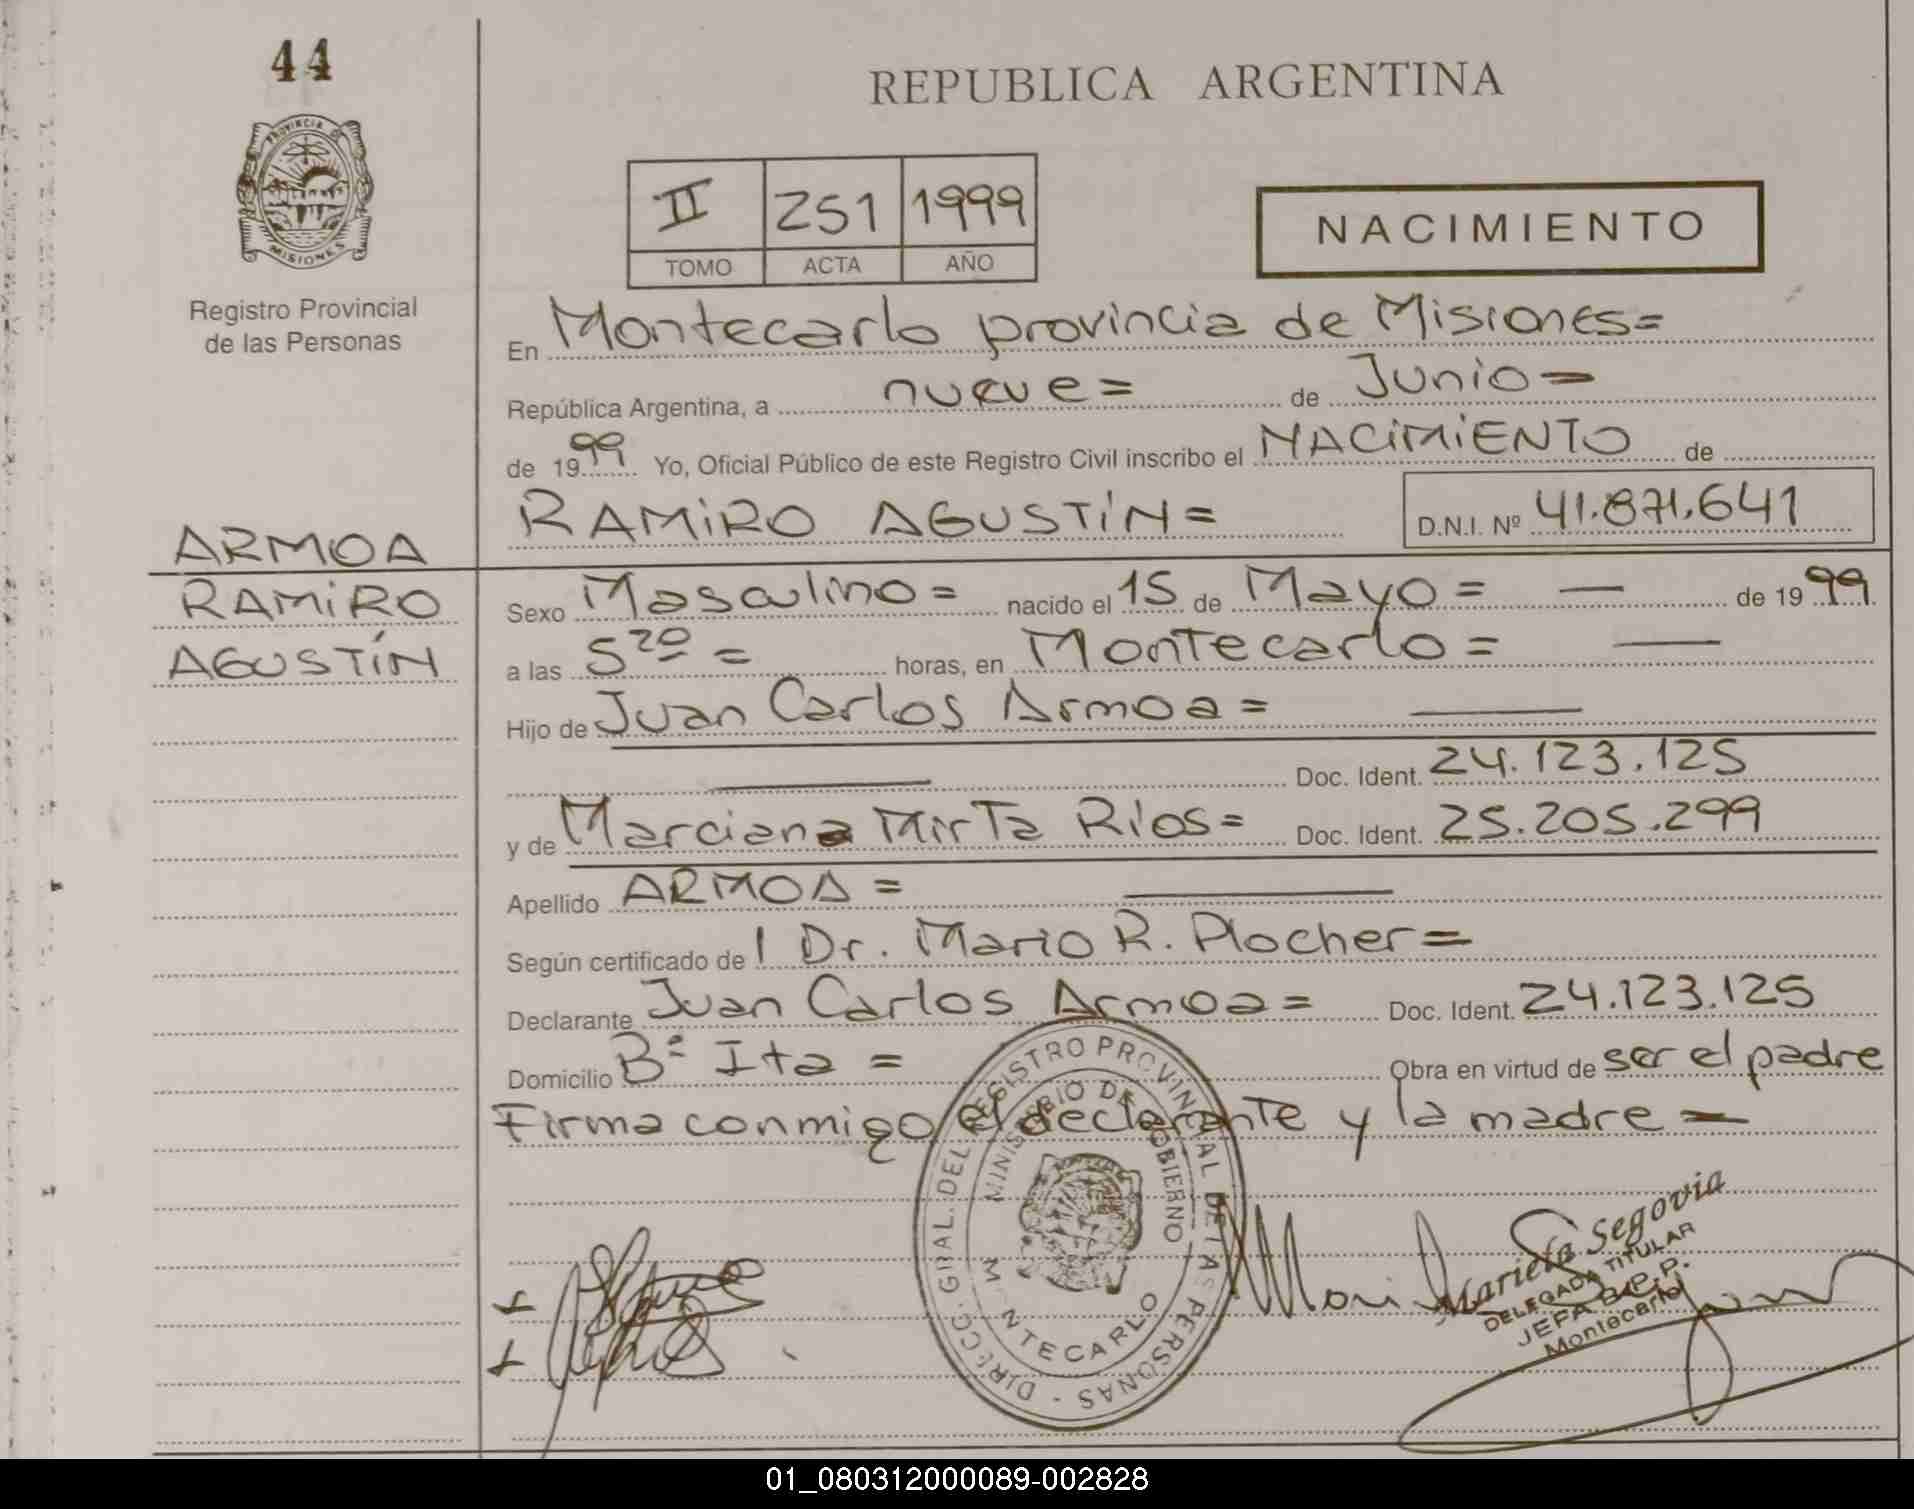 44
REPUBLICA ARGENTINA
PROVINCIA DE
MISIONES
Registro Provincial
de las Personas
II 251 1999
TOMO ACTA AÑO
NACIMIENTO
En Montecarlo provincia de Misiones=
República Argentina, a nueve= de Junio=
de 1999 Yo, Oficial Público de este Registro Civil inscribo el NACIMIENTO de
RAMIRO AGUSTÍN= D.N.I. Nº 41.871.641
ARMOA
RAMIRO
AGUSTÍN
Sexo Masculino= nacido el 15 de Mayo= — de 1999
a las 5 20 = horas, en Montecarlo= —
Hijo de Juan Carlos Armoa= —
— Doc. Ident. 24.123.125
y de Marciana Mirta Ríos= Doc. Ident. 25.205.299
Apellido ARMOA= —
Según certificado de l Dr. Mario R. Plocher=
Declarante Juan Carlos Armoa= Doc. Ident. 24.123.125
Domicilio Bº Ita = Obra en virtud de ser el padre
Firma conmigo el declarante y la madre=
DIRECC. GRAL. DEL REGISTRO PROVINCIAL DE LAS PERSONAS -
MINISTERIO DE GOBIERNO
MONTECARLO
Marieta Segovia
DELEGADA TITULAR
JEFA
Montecarlo
01_080312000089-002828